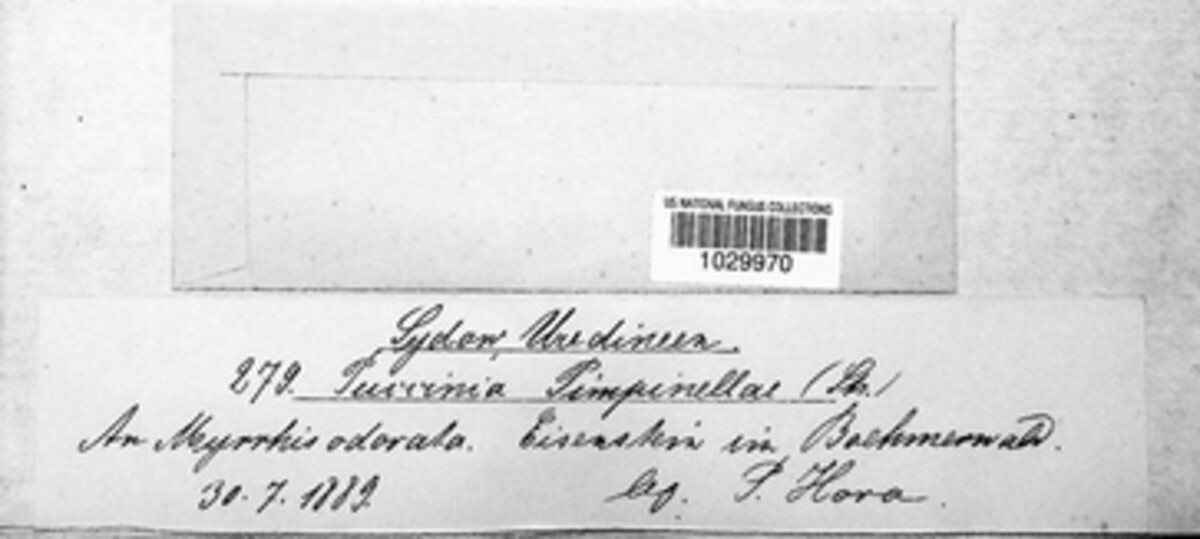 US NATIONAL FUNGUS COLLECTIONS
1029970
Sydow, Uredineen.
279. Puccinia Pimpinellae (Str.)
An Myrrhis odorata. Eisenstein im Boehmerwald.
30. 7. 1889. leg. P. Hora.